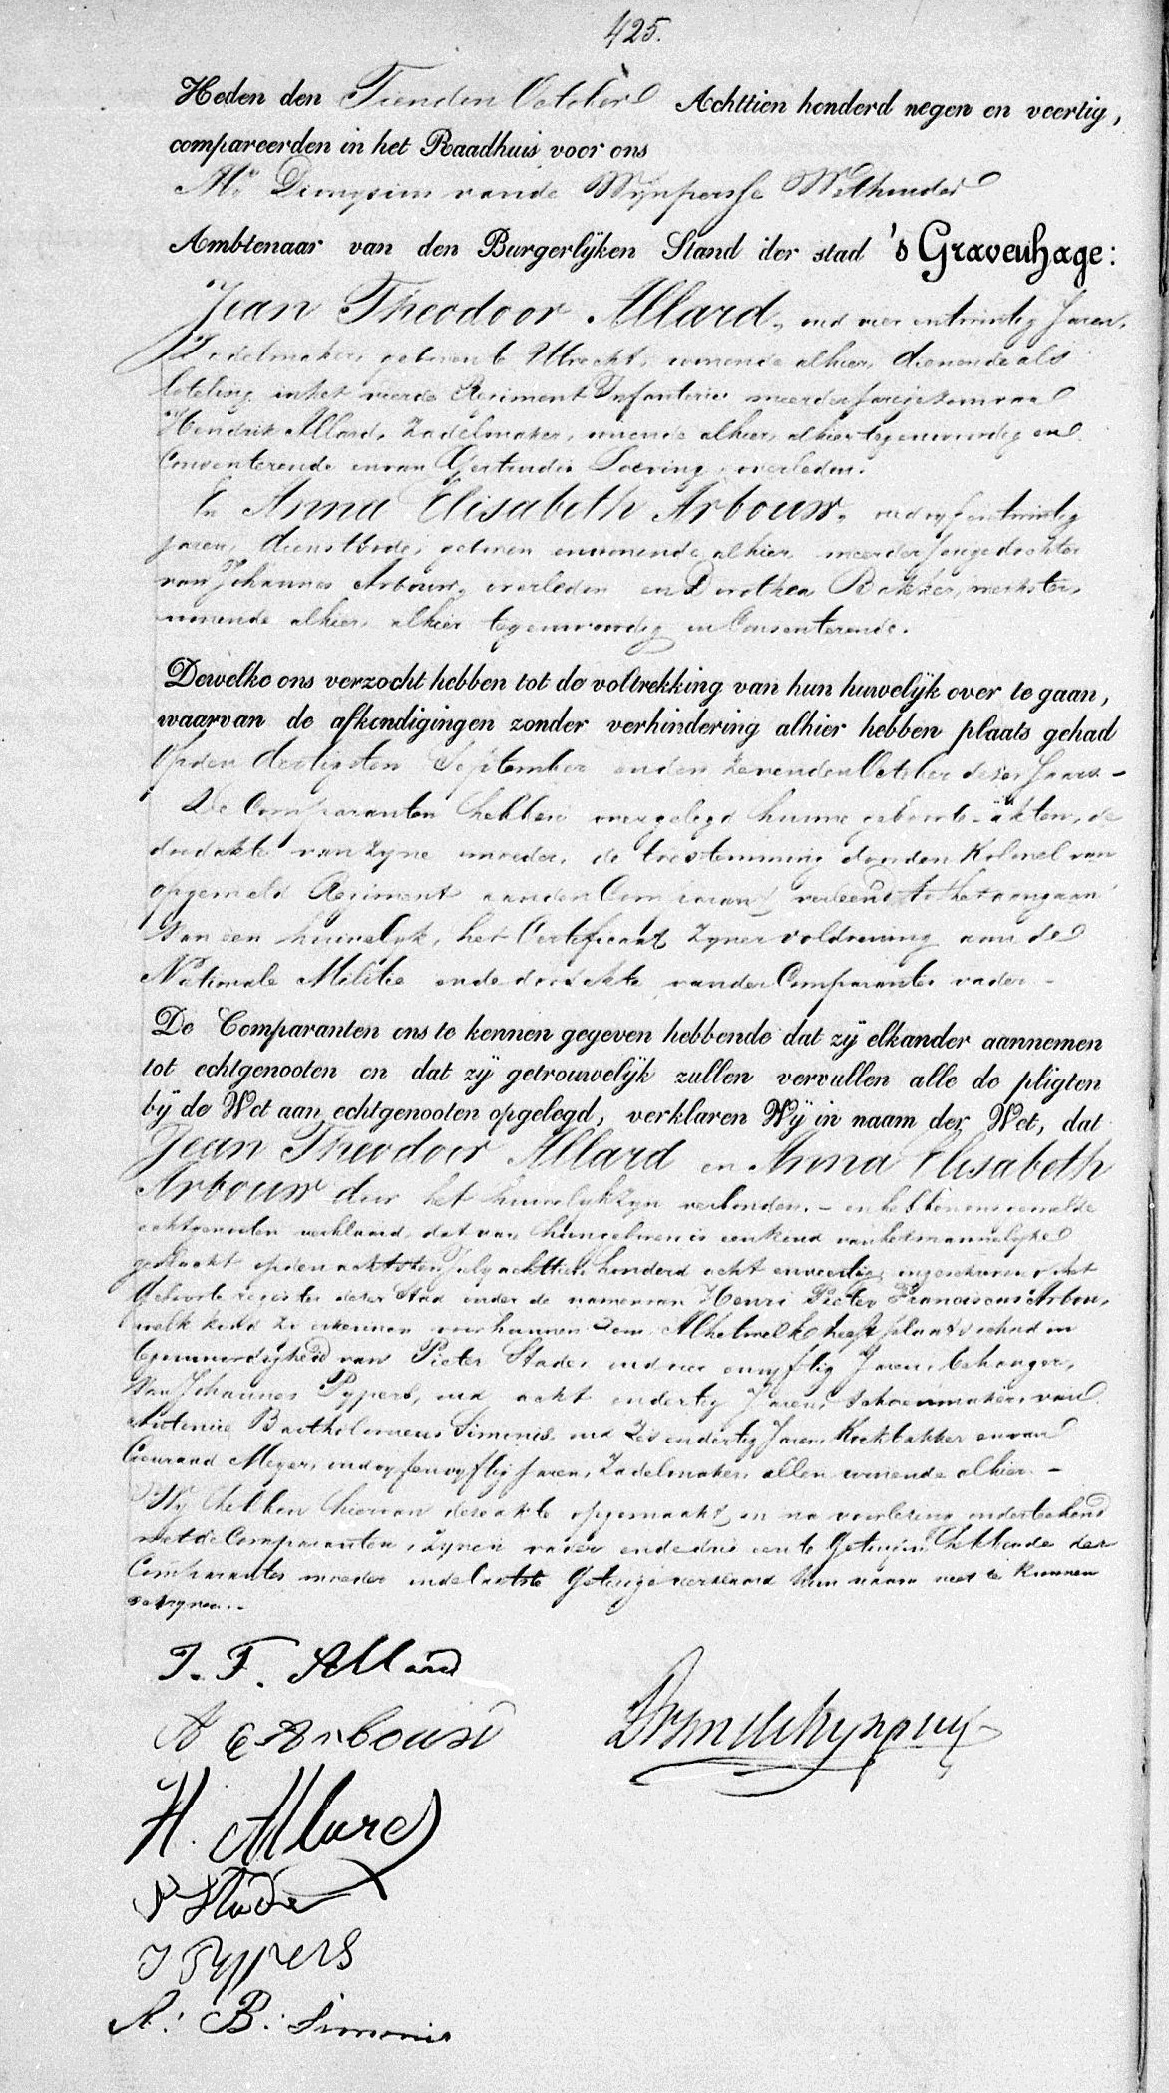 425.
Heden den Tienden October Achttien honderd negen en veertig,
compareerden in het Raadhuis voor ons
Mr. Dionysius van de Wijnpersse Wethouder
Ambtenaar van den Burgerlijken Stand der stad 's Gravenhage:
Jean Theodoor Allard, oud vier entwintig Jaren,
Zadelmaker, geboren te Utrecht, wonende alhier, dienende als
loteling in het vierde Regiment Infanterie meerderjarige zoon van
Hendrik Allard, Zadelmaker, wonende alhier, alhier tegenwoordig en
Consenterende en van Gertrudis Toering, overleden.
En Anna Elisabeth Arbouw, oud vyf entwintig
jaren, dienstbode, geboren en wonende alhier, meerderjarige dochter
van Johannes Arbouw, overleden en Dorothea Bakker, werkster,
wonende alhier, alhier tegenwoordig en Consenterende.
Dewelke ons verzocht hebben tot de voltrekking van hun huwelijk over te gaan,
waarvan de afkondigingen zonder verhindering alhier hebben plaats gehad
Op den dertigsten September en den zevenden October dezes Jaars.-
De Comparanten hebben overgelegd hunne geboorte-akten, de
doodakte van zyne moeder, de toestemming door den Kolonel van
opgemeld Regiment aan den Comparant verleend tot het aangaan
van een huwelyk, het Certificaat zyner voldoening aan de
Nationale Militie en de doodakte van der Comparantes vader.-
De Comparanten ons te kennen gegeven hebbende dat zij elkander aannemen
tot echtgenooten en dat zij getrouwelijk zullen vervullen alle de pligten
bij de Wet aan echtgenooten opgelegd, verklaren Wij in naam der Wet, dat
Jean Theodoor Allard en Anna Elisabeth
Arbouw door het huwelyk zyn verbonden.- en hebben genoemde
echtgenooten verklaard, dat van hun geboren is een kind van het mannelyke
geslacht op den achtsten July achttien honderd acht en veertig, ingeschreven in het
Geboorte register dezer Stad onder de namen van Henri Pieter Franciscus Arbou,
welk kind zy erkennen voor hunnen Zoon. Al hetwelk heeft plaats gehad in
tegenwoordigheid van Pieter Stade, oud vier en vyftig Jaren, behanger,
van Johannes Pypers, oud acht en dertig Jaren, Schoenmaker, van
Antonie Bartholomeus Simonis oud Zes en dertig Jaren Koekbakker en van
Coenraad Meyer, oud vyf en vyftig jaren, Zadelmaker, allen wonende alhier.-
Wy hebben hiervan deze akte opgemaakt en na voorlezing onderteekend
met de Comparanten, zynen vader en de drie eerste Getuigen hebbende der
Comparantes moeder en de laatste Getuige verklaard hun naam niet te kunnen
teekenen.-
J. T. Allard
A E Arbouw
H. Allard
P Stade
J Pypers
A. B. Simonis